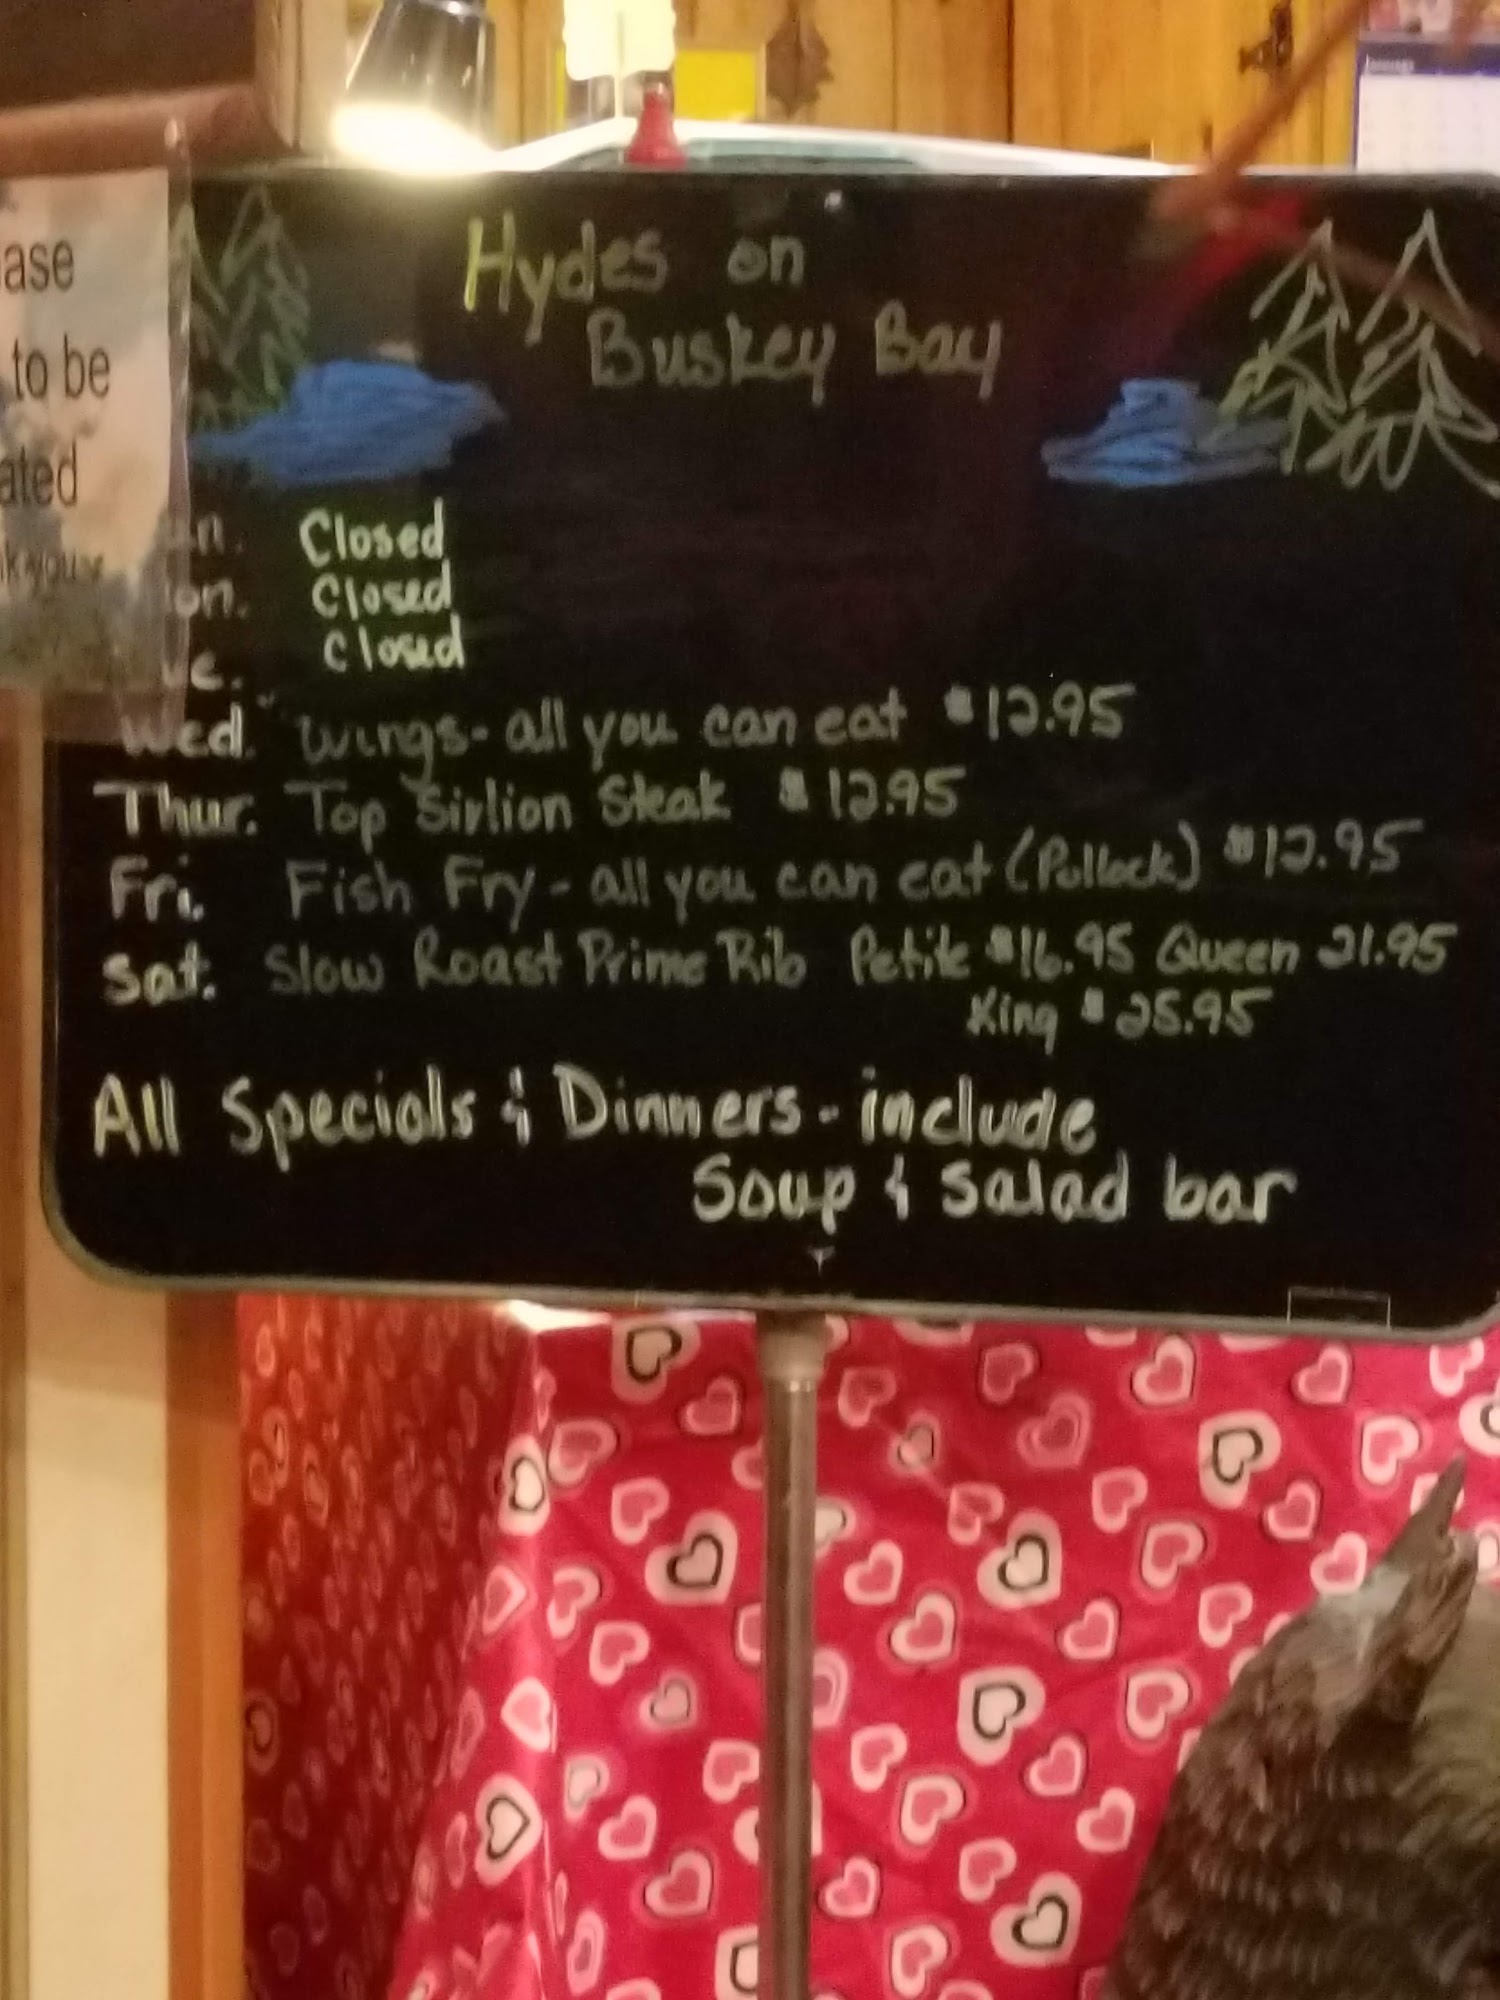 Hydes on
Buskey Bay
ase
to be
ated
n. Closed
on. Closed
e. Closed
Wed. Wings- all you can eat $12.95
Thur. Top Sirlion Steak $12.95
Fri. Fish Fry - all you can eat (Pollock) $12.95
Sat. Slow Roast Prime Rib Petite $16.95 Queen 21.95
King $25.95
All Specials & Dinners - include
Soup & Salad bar